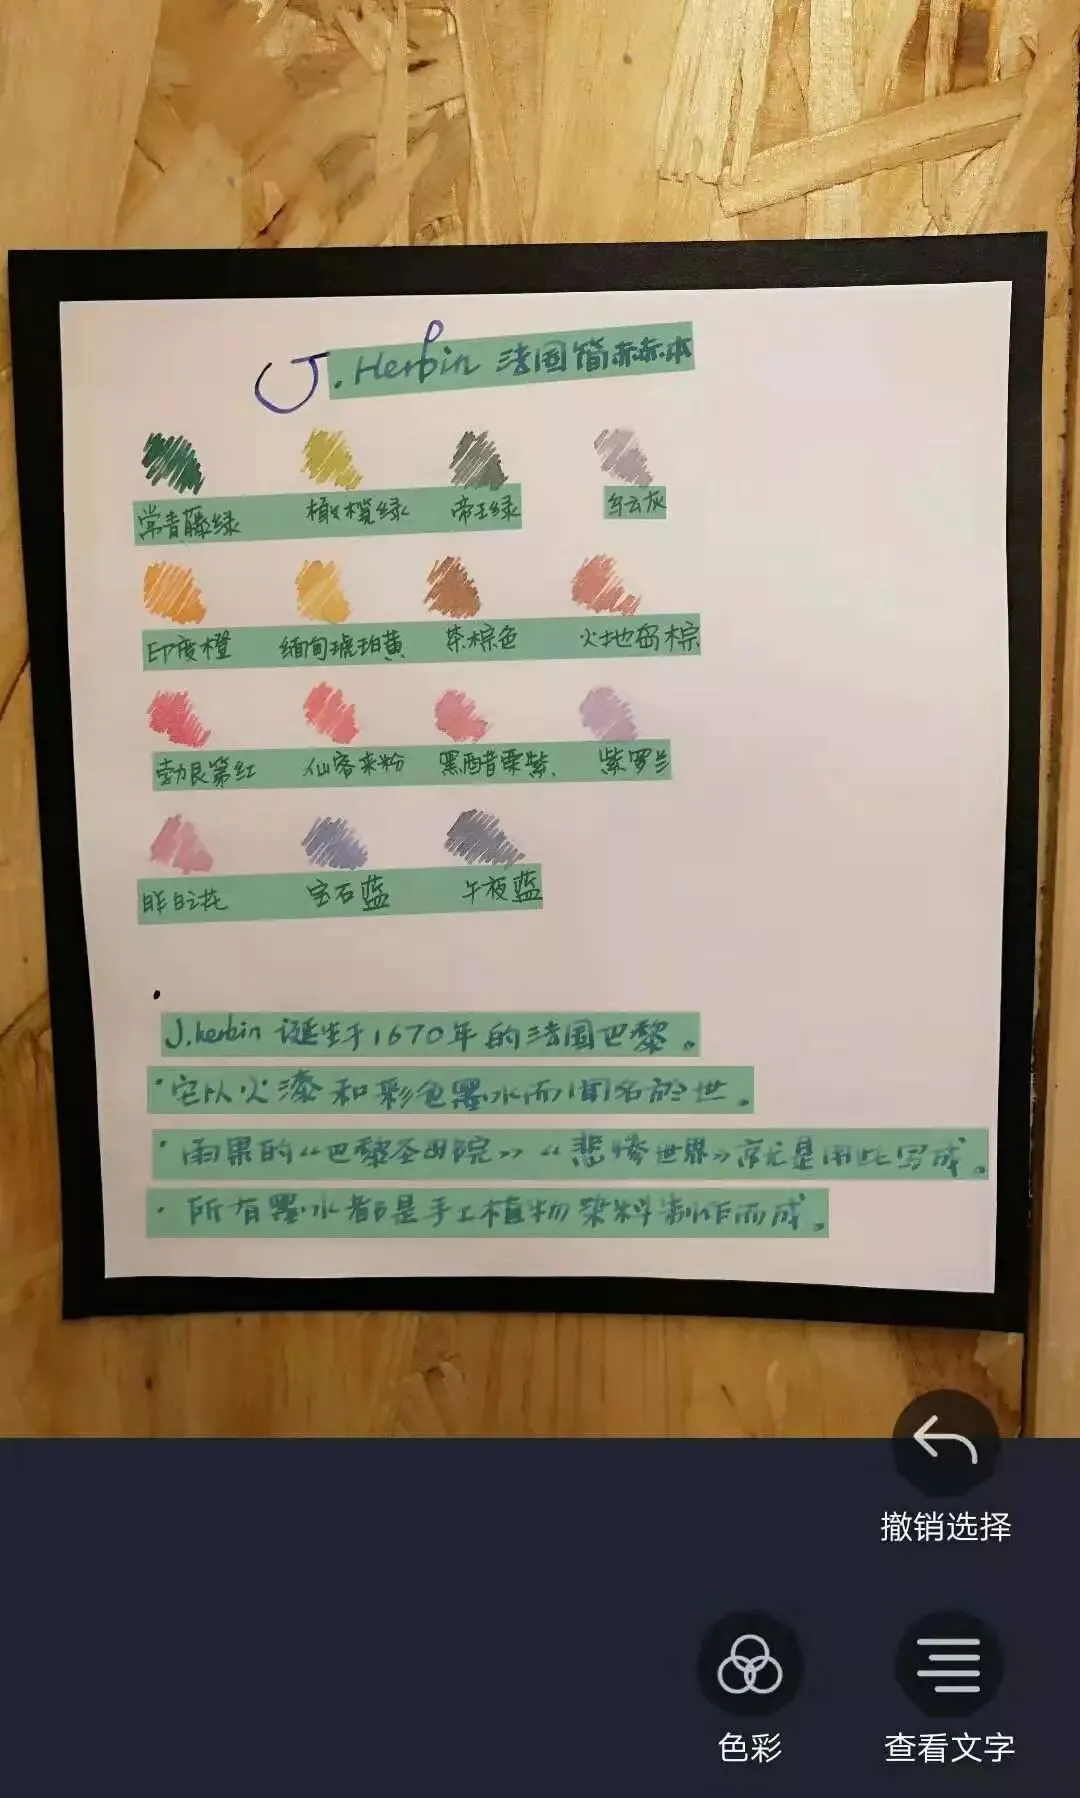 J. Herbin 法国简赫赫本
常青藤绿 橄榄绿 帝王绿 乌云灰
印度橙 缅甸琥珀黄 茶棕色 火地岛棕
勃艮第红 仙客来粉 黑醋栗紫 紫罗兰
昨日之花 宝石蓝 午夜蓝
J.herbin 诞生于1670年的法国巴黎。
·它以火漆和彩色墨水而闻名於世。
·雨果的“巴黎圣母院”“悲惨世界”就是用此写成。
·所有墨水都是手工植物染料制作而成。
撤销选择
色彩 查看文字